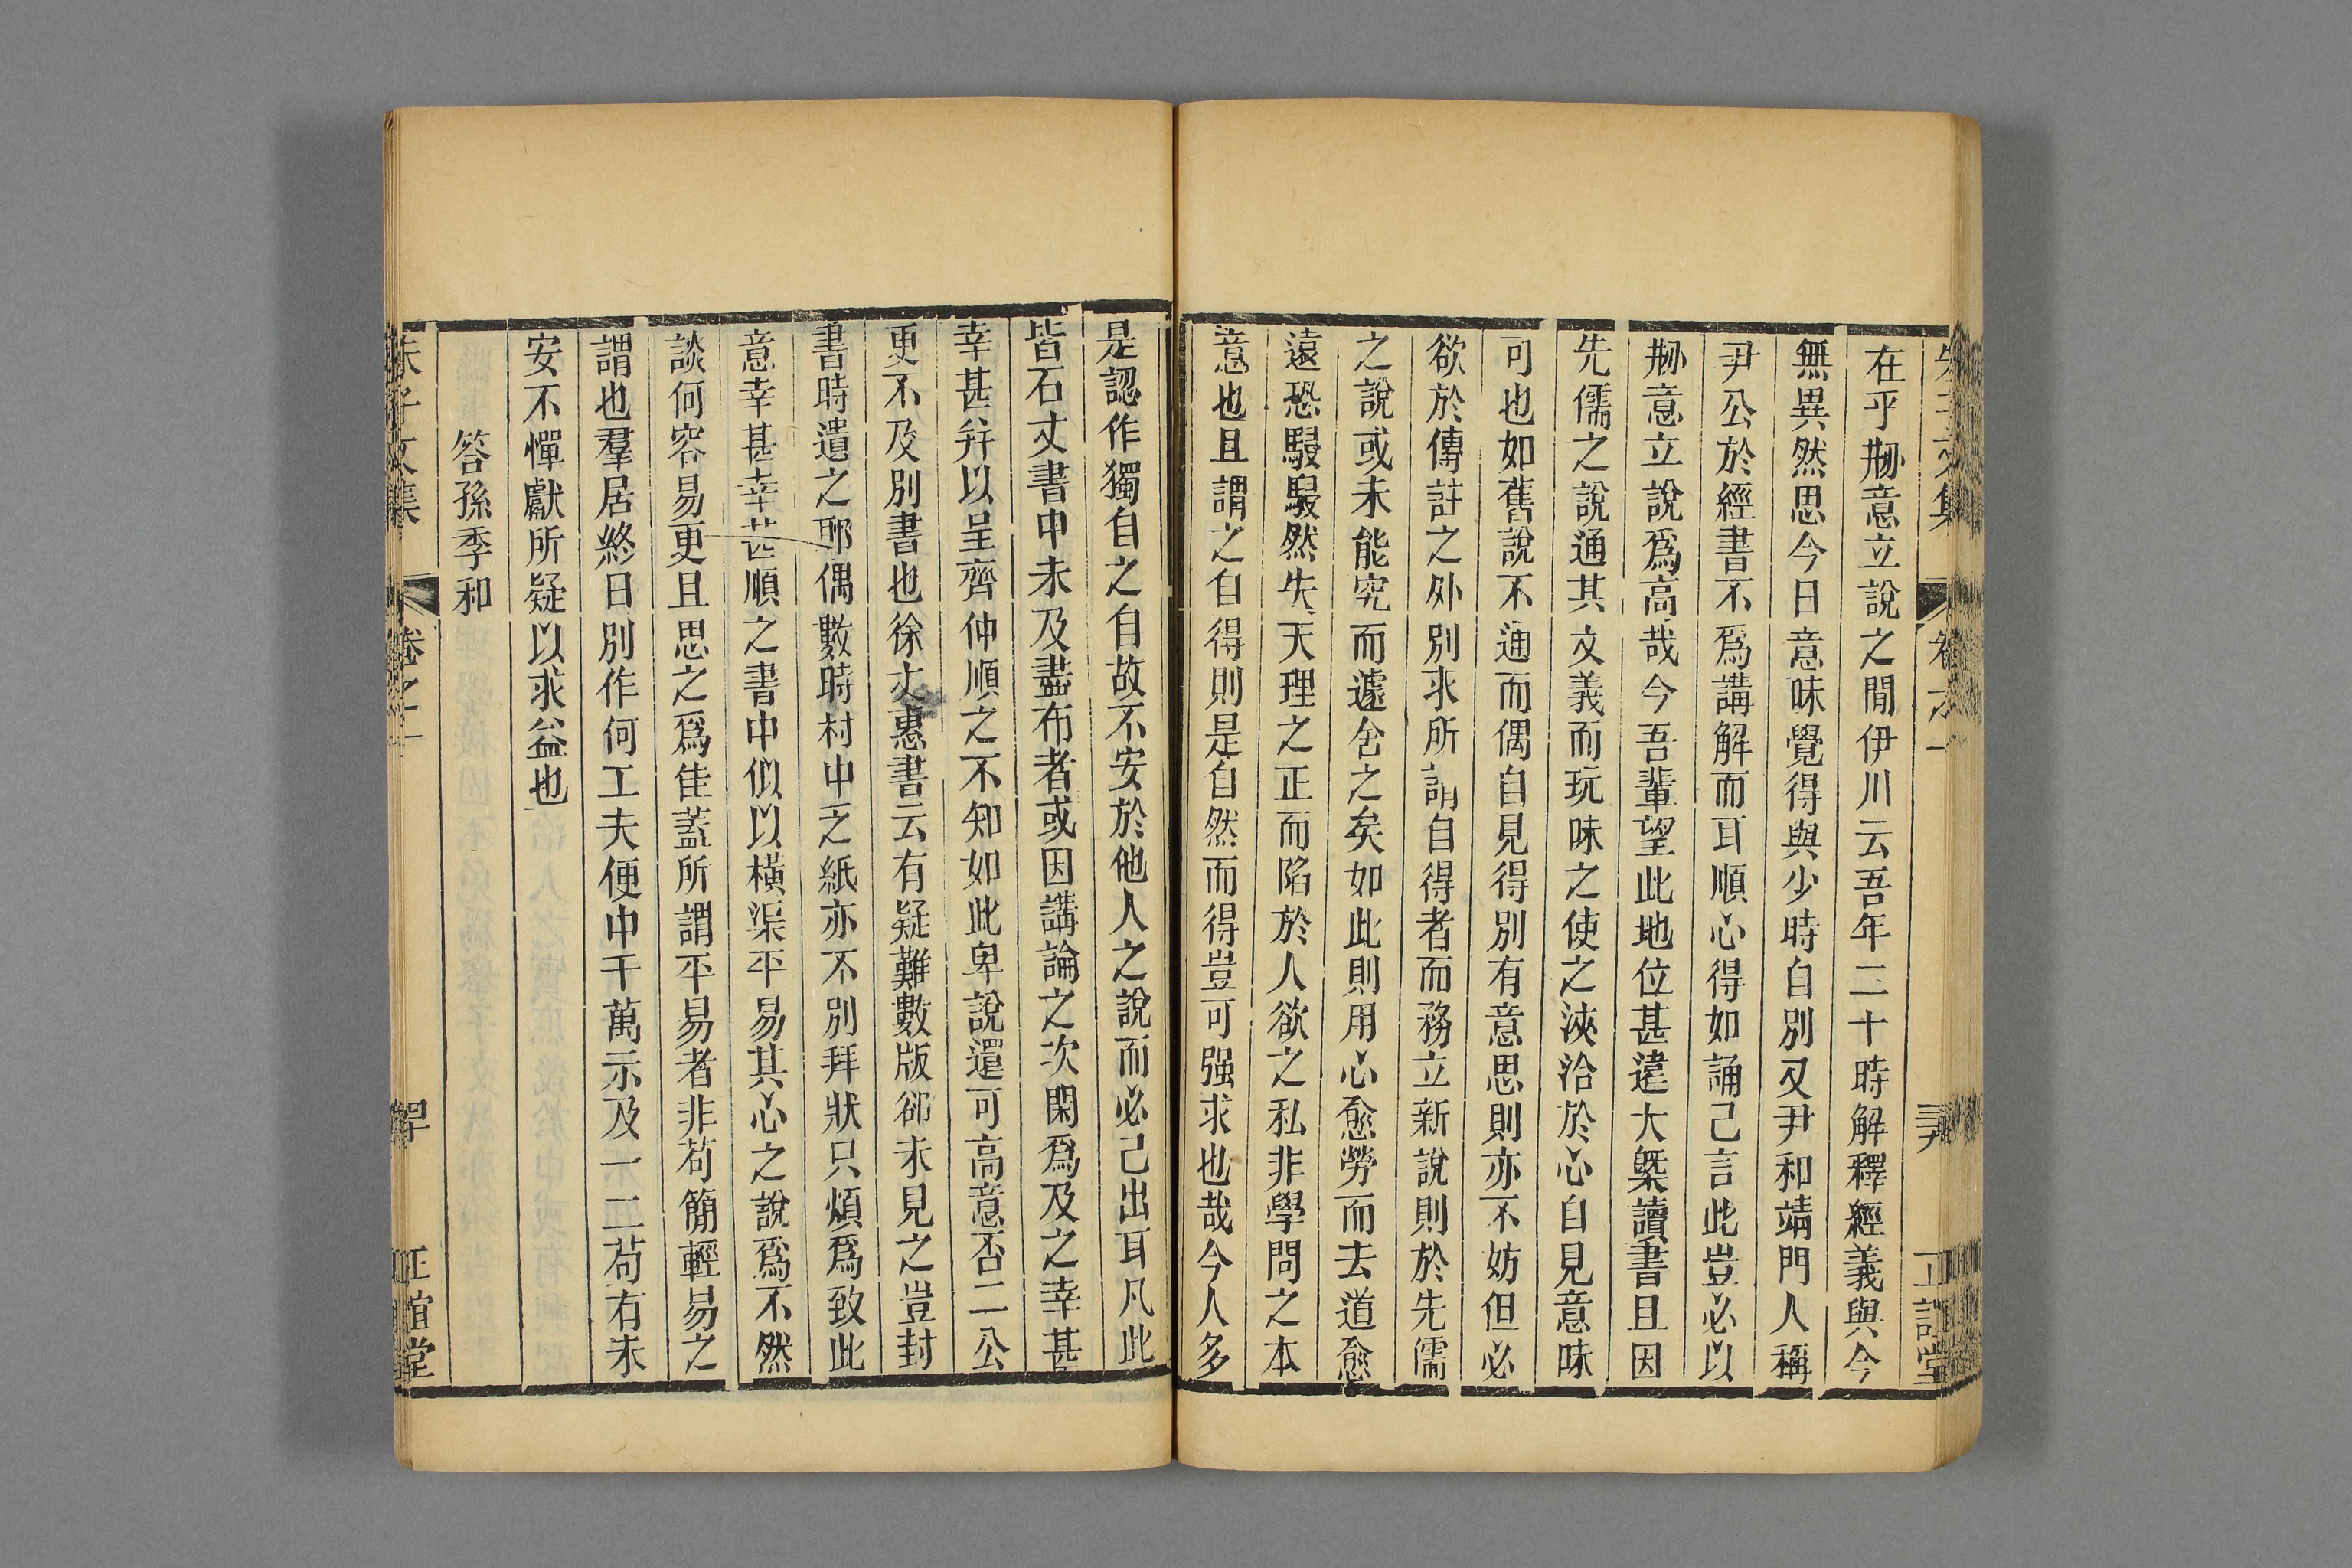 在乎剏意立說之閒伊川云吾年二十時解釋經義與今
無異然思今日意味覺得與少時自別又尹和靖門人稱
尹公於經書不爲講解而耳順心得如誦己言此豈必以
剏意立說爲高哉今吾輩望此地位甚遠大槩讀書且因
先儒之說通其文義而玩味之使之浹洽於心自見意味
可也如舊說不通而偶自見得別有意思則亦不妨但必
欲於傳註之外別求所謂自得者而務立新說則於先儒
之說或未能究而遽舍之矣如此則用心愈勞而去道愈
遠恐駸駸然失天理之正而陷於人欲之私非學問之本
意也且謂之自得則是自然而得豈可强求也哉今人多
是認作獨自之自故不安於他人之說而必己出耳凡此
皆石丈書中未及盡布者或因講論之次閑爲及之幸甚
幸甚幷以呈齊仲順之不知如此卑說還可高意否二公
更不及別書也徐丈惠書云有疑難數版卻未見之豈封
書時遺之耶偶數時村中乏紙亦不別拜狀只煩爲致此
意幸甚幸甚順之書中似以橫渠平易其心之說爲不然
談何容易更且思之爲佳蓋所謂平易者非苟簡輕易之
謂也羣居終日別作何工夫便中千萬示及一二苟有未
安不憚獻所疑以求益也
答孫季和
朱子文集
正誼堂